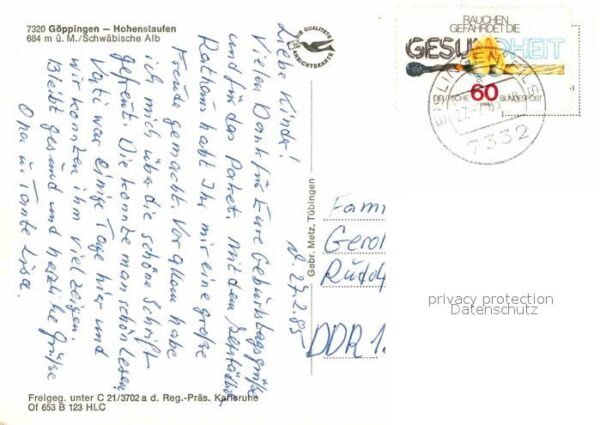 7320 Göppingen – Hohenstaufen
684 m ü. M./Schwäbische Alb
DIE QUALITÄTS
ANSICHTSKARTE
RAUCHEN
GEFÄHRDET DIE
GESUNDHEIT
DEUTSCHE 60 BUNDESPOST
EISLINGEN, FILS
7332
d. 27.2.85
Liebe Kinder!
Vielen Dank für Eure Geburtstagsgrüße
und für das Paket. Mit dem
Rathaus habt Ihr mir eine große
Freude gemacht. Vor allem habe
ich mich über die schöne Schrift
gefreut. Die konnte man schön lesen
Vati war einige Tage hier und
wir konnten ihm viel zeigen.
Bleibt gesund und herzliche Grüße
Opa u Tante Lisa.
Gebr. Metz, Tübingen
Fam
Gero
Rudo
DDR 1.
privacy protection
Datenschutz
Freigeg. unter C 21/3702 a d. Reg.-Präs. Karlsruhe
Of 653 B 123 HLC